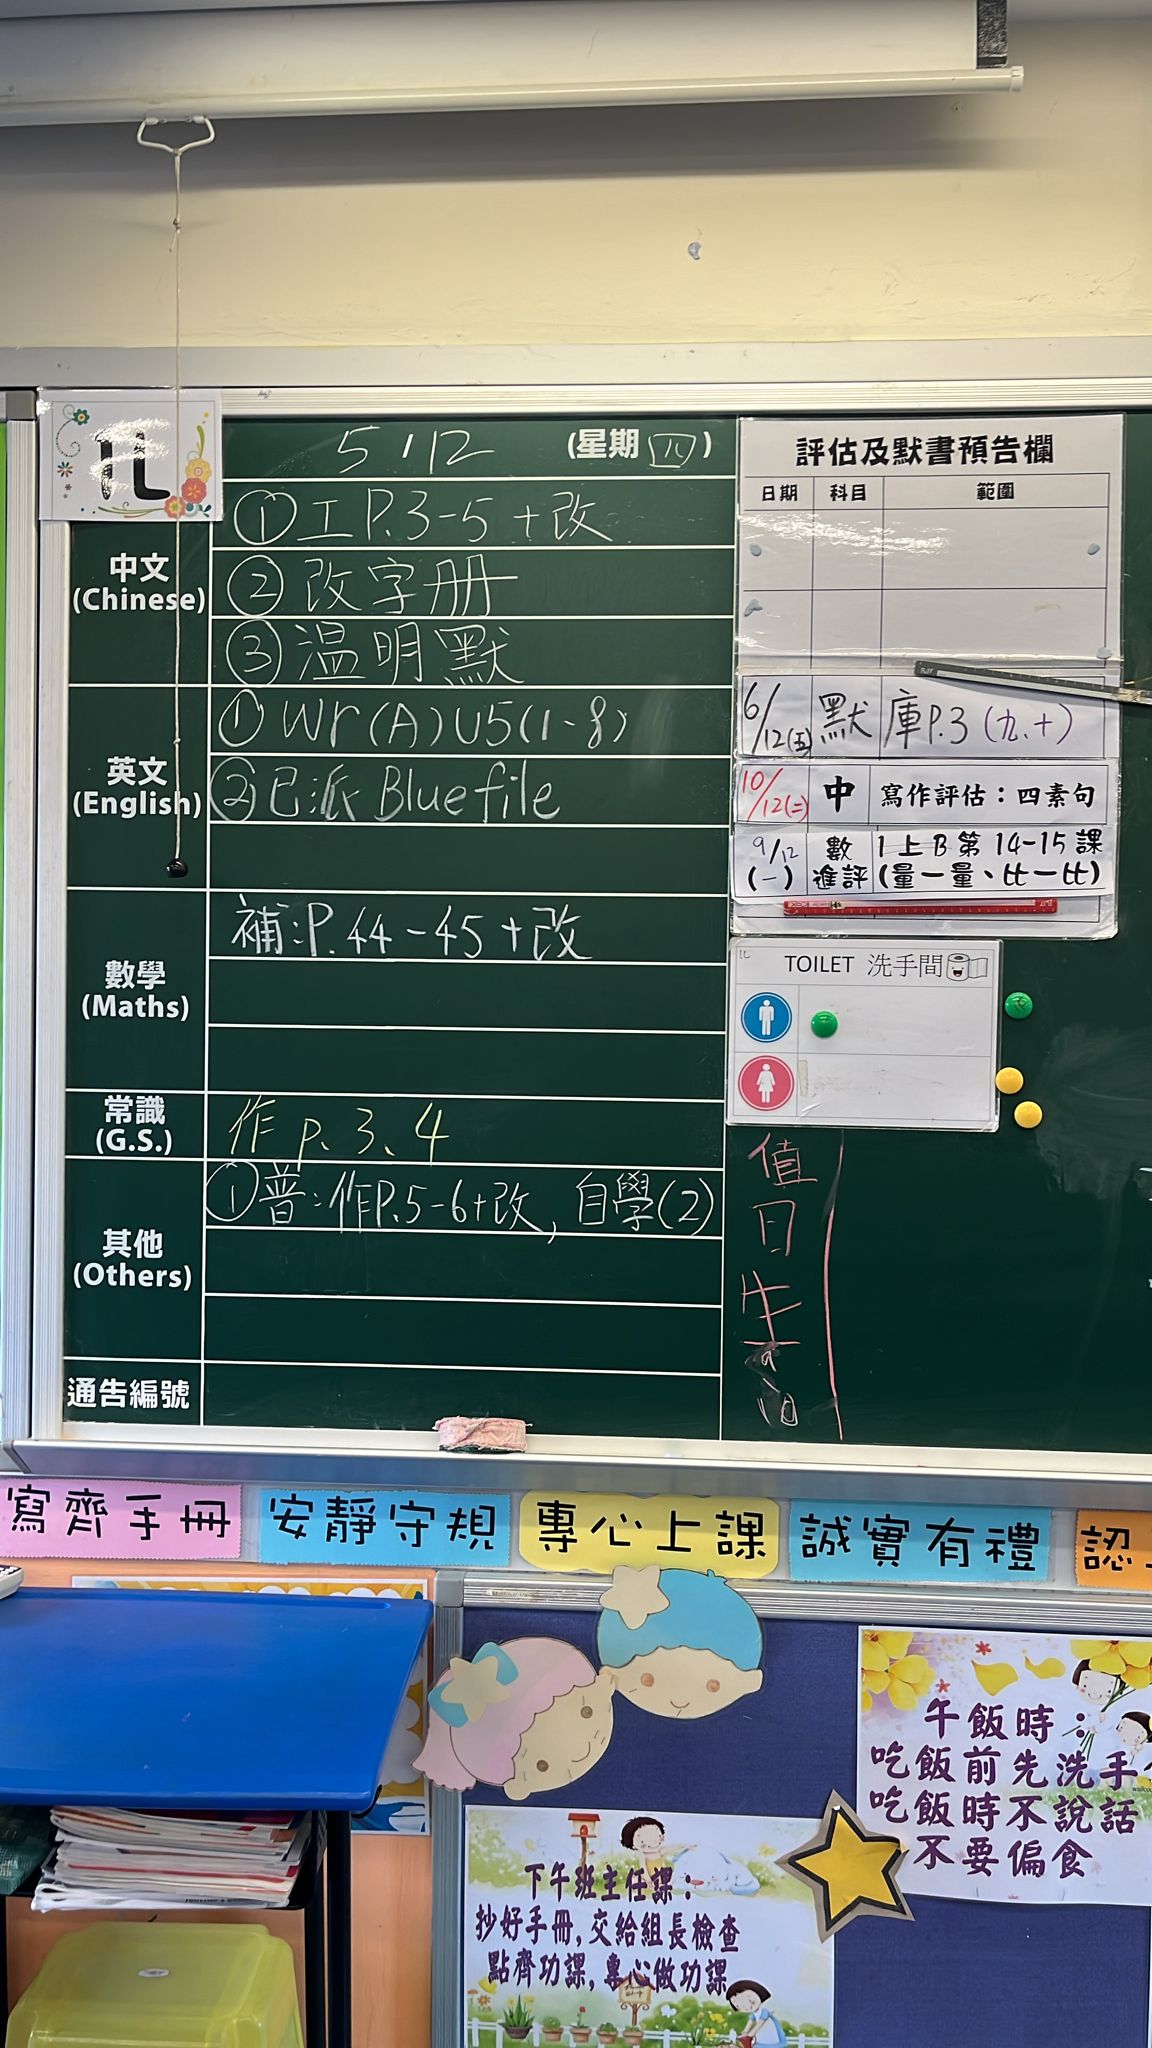 1L
5/12 (星期四)
中文
(Chinese)
①工P.3-5+改
②改字册
③温明默
英文
(English)
①Wr(A)U5(1-8)
②已派 Blue file
數學
(Maths)
補:P.44-45+改
常識
(G.S.)
作 p. 3、4
其他
(Others)
①普:作P.5-6+改, 自學(2)
通告編號
評估及默書預告欄
日期 科目 範圍
6/12(五) 默 庫P.3 (九、十)
10/12(二) 中 寫作評估:四素句
9/12(一) 數進評 1上B第14-15課(量一量、比一比)
1L
TOILET 洗手間
值日生
寫齊手冊
安靜守規
專心上課
誠實有禮
認
午飯時:
吃飯前先洗手
吃飯時不說話
不要偏食
下午班主任課:
抄好手冊,交給組長檢查
點齊功課,專心做功課